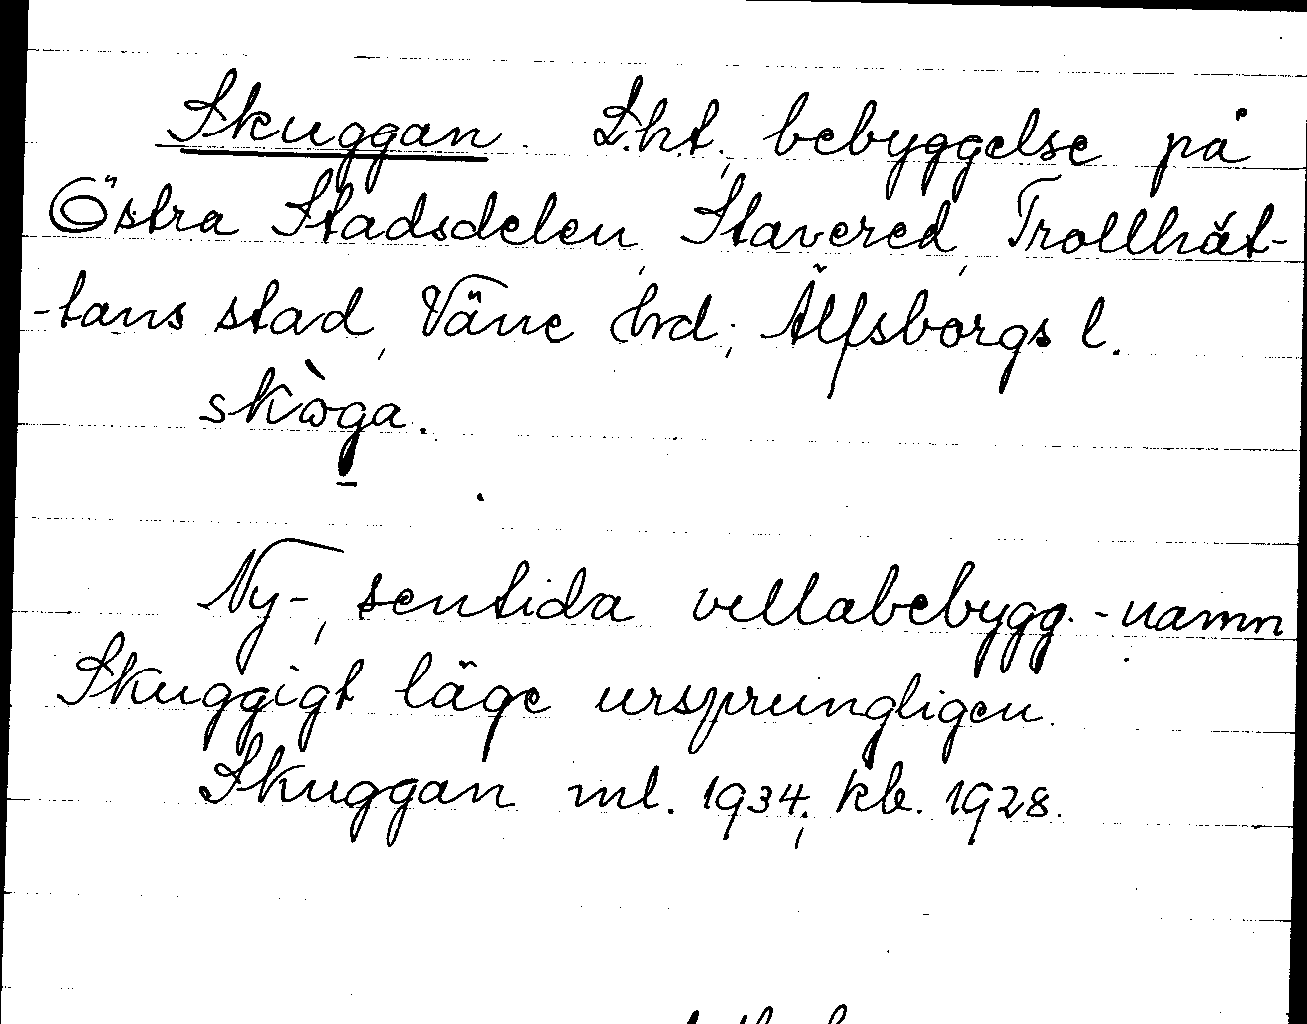 Skuggan. L.h.t., bebyggelse på
Östra Stadsdelen, Stavered, Trollhät-
-tans stad, Väne hrd; Älfsborgs l.
skòga.
Ny-, sentida villabebygg.-namn
Skuggigt läge ursprungligen.
Skuggan ml. 1934; kb. 1928.